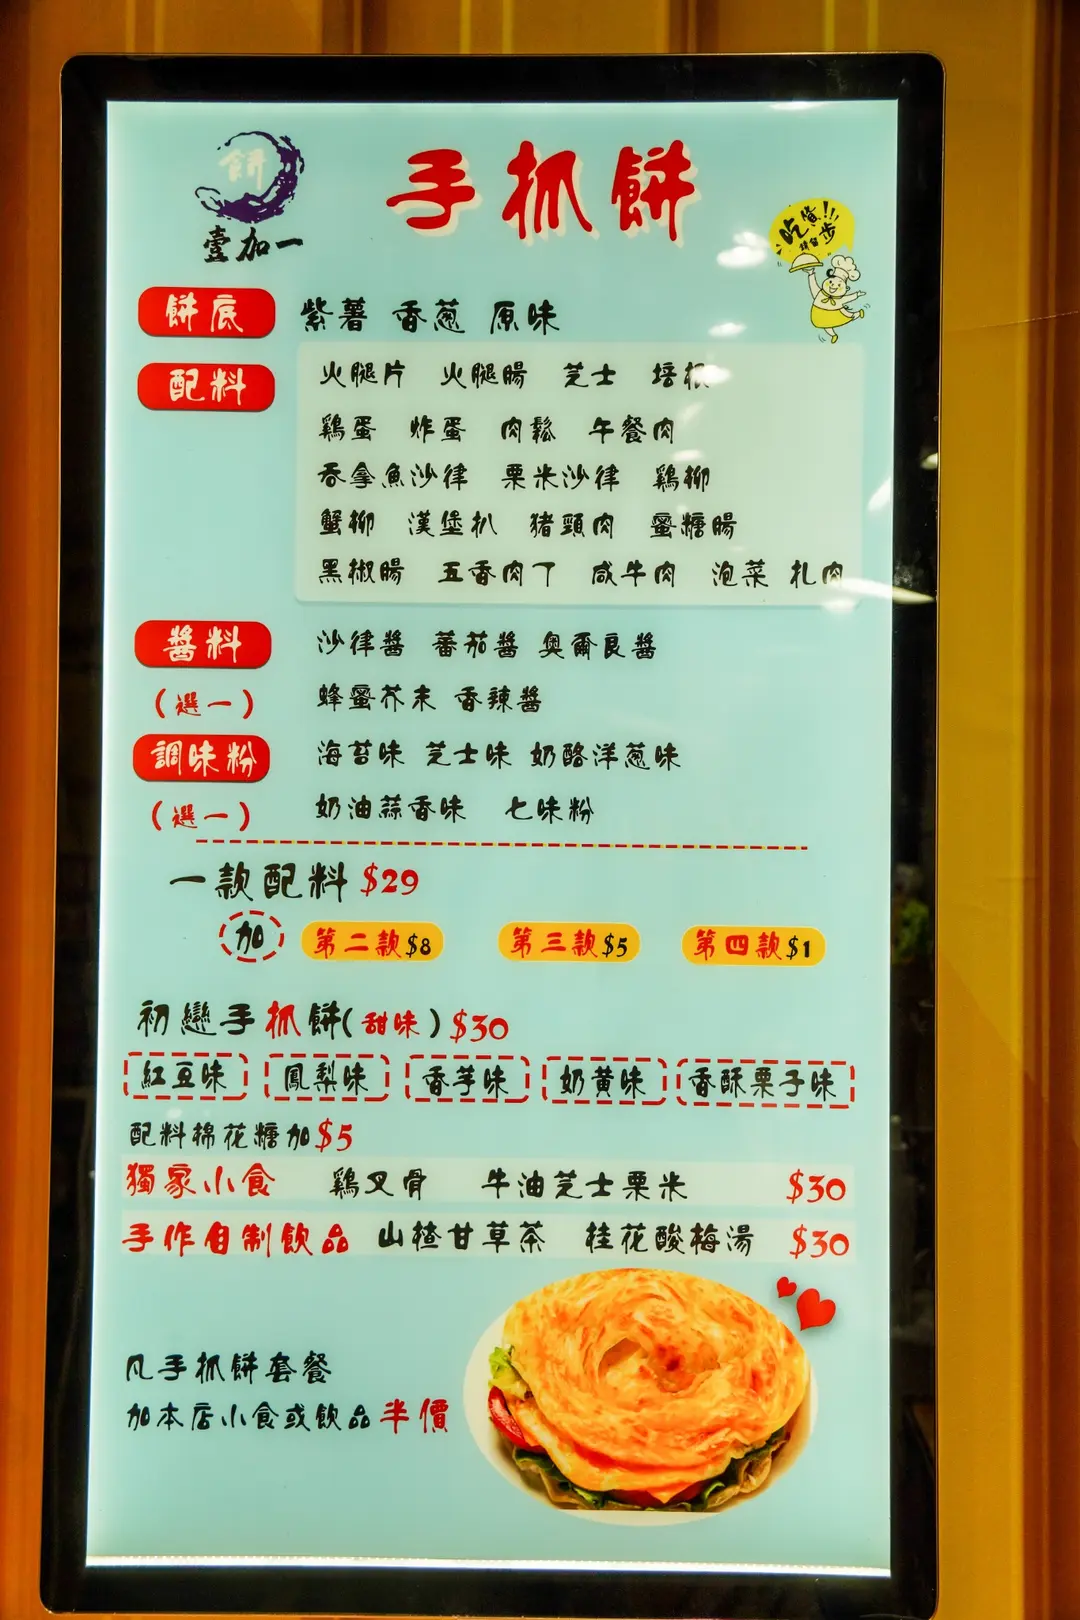 餅
壹加一
手抓餅
吃貨!!!
請留步
餅底 紫薯 香蔥 原味
配料 火腿片 火腿腸 芝士 培根
鷄蛋 炸蛋 肉鬆 午餐肉
吞拿魚沙律 粟米沙律 鷄柳
蟹柳 漢堡扒 豬頸肉 蜜糖腸
黑椒腸 五香肉丁 咸牛肉 泡菜 扎肉
醬料 沙律醬 蕃茄醬 奧爾良醬
(選一) 蜂蜜芥末 香辣醬
調味粉 海苔味 芝士味 奶酪洋蔥味
(選一) 奶油蒜香味 七味粉
一款配料 $29
加 第二款$8 第三款$5 第四款$1
初戀手抓餅(甜味)$30
紅豆味 鳳梨味 香芋味 奶黄味 香酥栗子味
配料棉花糖加$5
獨家小食 鷄叉骨 牛油芝士粟米 $30
手作自制飲品 山楂甘草茶 桂花酸梅湯 $30
凡手抓餅套餐
加本店小食或飲品半價